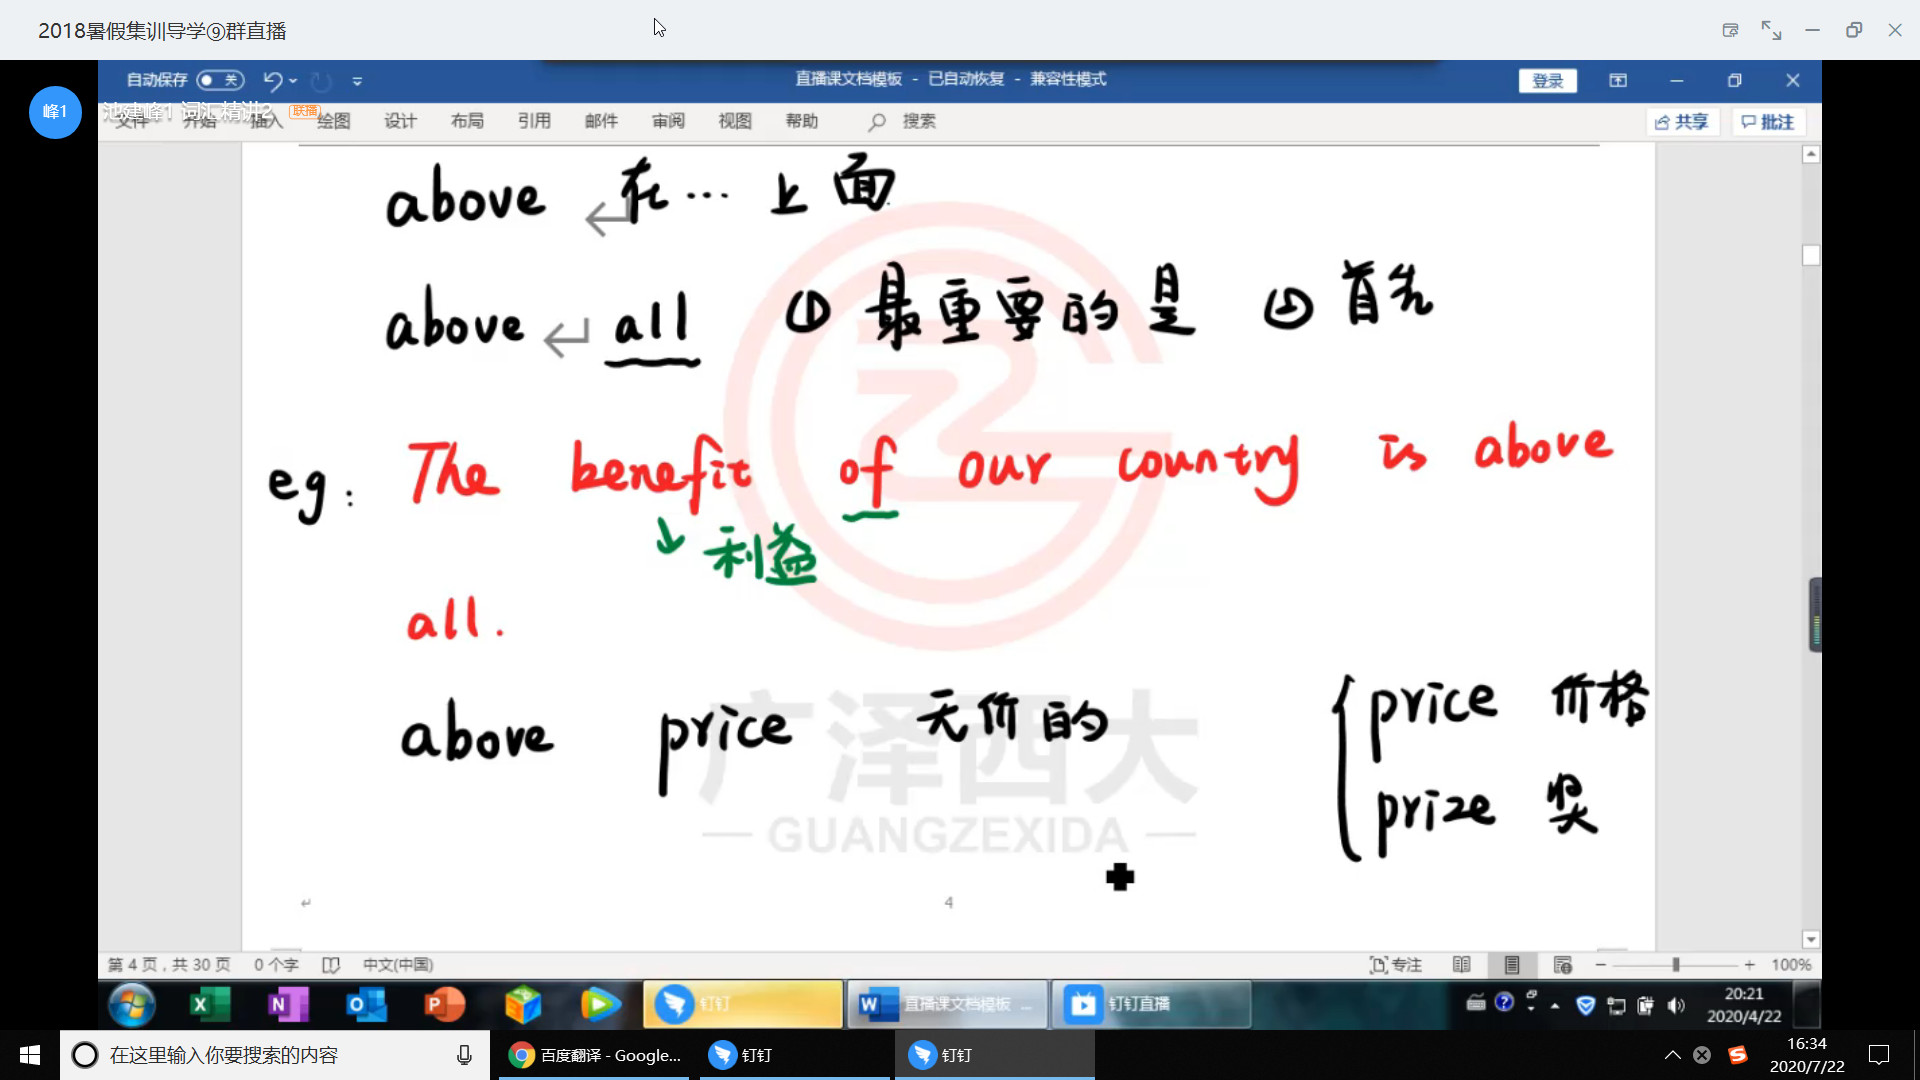 2018暑假集训导学⑨群直播
自动保存 关 直播课文档模板 - 已自动恢复 - 兼容性模式 登录
峰1 池建峰1 词汇精讲2 联播
文件 开始 插入 绘图 设计 布局 引用 邮件 审阅 视图 帮助 搜索 共享 批注
above 在… 上面
above all ① 最重要的是 ② 首先
eg: The benefit of our country is above
利益
all.
above price 无价的 price 价格
prize 奖
广泽西大
GUANGZEXIDA
4
第 4 页，共 30 页 0 个字 中文(中国) 专注 100%
钉钉 直播课文档模板 ... 钉钉直播 20:21
2020/4/22
在这里输入你要搜索的内容 百度翻译 - Google... 钉钉 钉钉 16:34
2020/7/22